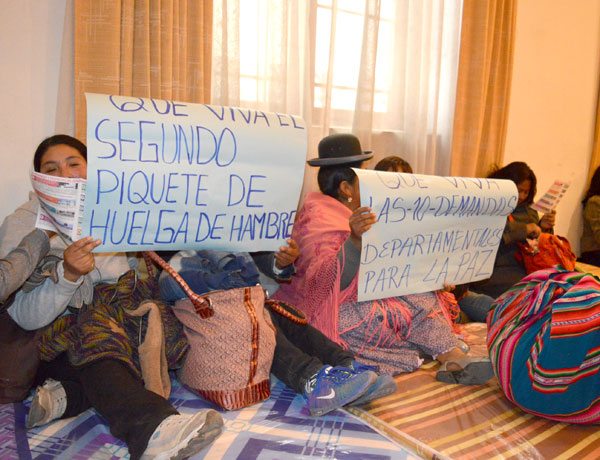 QUE VIVA EL
SEGUNDO
PIQUETE DE
HUELGA DE HAMBRE
QUE VIVA
LAS-10-DEMANDAS
DEPARTAMENTALES
PARA LA PAZ